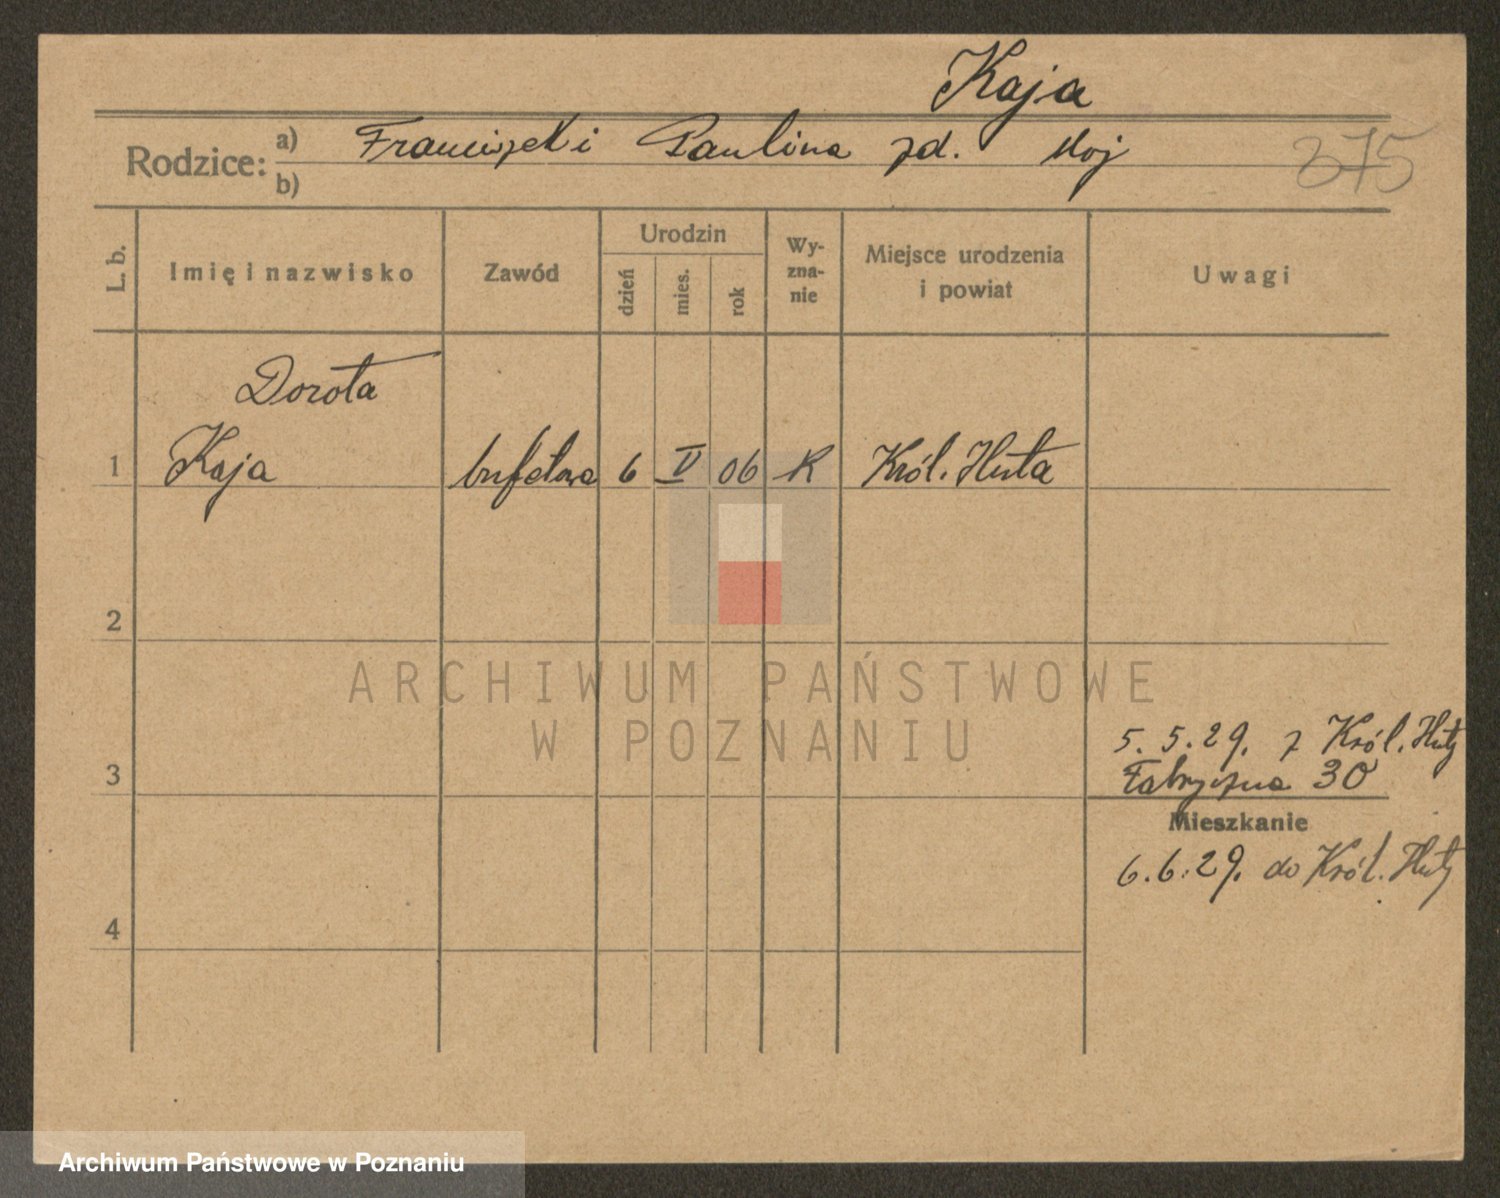 Kaja
Rodzice: a) Franciszek i Paulina zd. Moj
b)
375
L. b.
Imię i nazwisko
Zawód
Urodzin
dzień
mies.
rok
Wy-
zna-
nie
Miejsce urodzenia
i powiat
Uwagi
Dorota
1 Kaja bufetowa 6 V 06 K Król. Huta
2
ARCHIWUM PAŃSTWOWE
W POZNANIU
5. 5. 29. z Król. Huty
3 Fabryczna 30
Mieszkanie
6. 6. 29. do Król. Huty
4
Archiwum Państwowe w Poznaniu